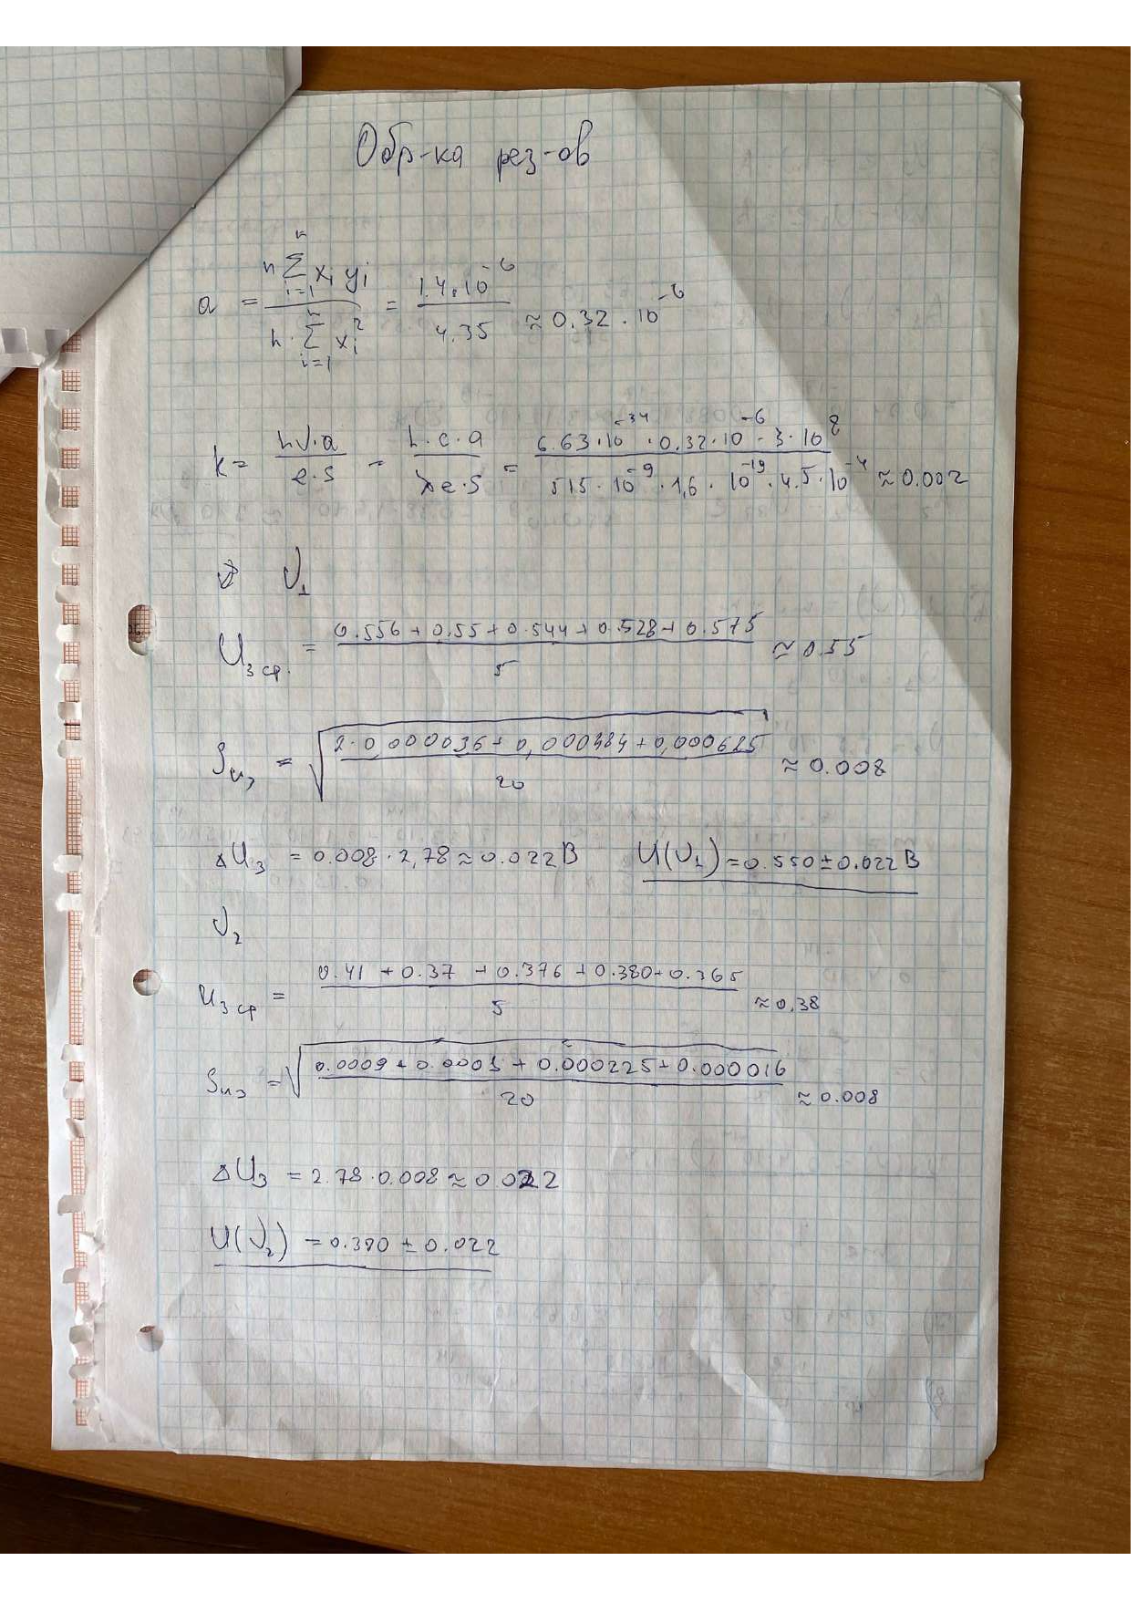 Обр-ка рез-ов
a = n∑ⁿᵢ₌₁ xᵢ yᵢ / n·∑ⁿᵢ₌₁ xᵢ² = 1.4·10⁻⁶ / 4.35 ≈ 0.32·10⁻⁶
k = hν·a / e·S = h·c·a / λe·S = 6.63·10⁻³⁴·0.32·10⁻⁶·3·10⁸ / 515·10⁻⁹·1,6·10⁻¹⁹·4.5·10⁻⁴ ≈ 0.002
ν₁
U₃ ср. = 0.556+0.55+0.544+0.528+0.575 / 5 ≈ 0.55
S_U₃ = √(2·0,000036+0,000484+0,000625 / 20) ≈ 0.008
ΔU₃ = 0.008·2,78 ≈ 0.022 В U(ν₁) = 0.550±0.022 В
ν₂
U₃ ср = 0.41+0.37+0.376+0.380+0.365 / 5 ≈ 0,38
S_U₃ = √(0.0009+0.0001+0.000225+0.000016 / 20) ≈ 0.008
ΔU₃ = 2.78·0.008 ≈ 0.022
U(ν₂) = 0.380 ± 0.022